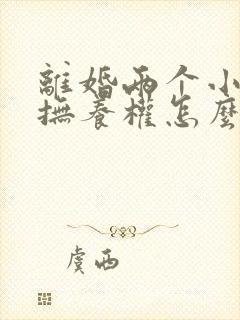 離婚兩个小
撫養權怎麼
虞西